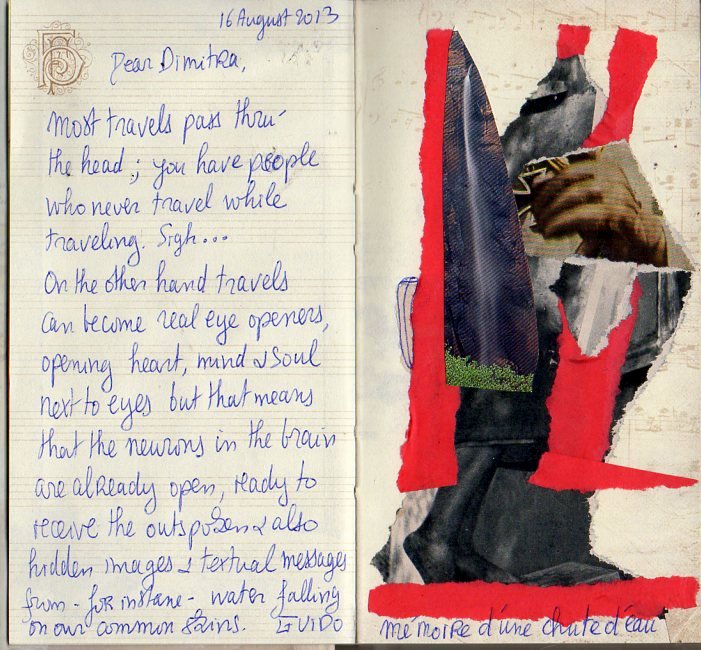 16 August 2013
Dear Dimitra,
Most travels pass thru-
the head; you have people
who never travel while
traveling. Sigh...
On the other hand travels
can become real eye openers,
opening heart, mind & soul
next to eyes but that means
that the neurons in the brain
are already open, ready to
receive the outspoken & also
hidden images & textual messages
from - for instane - water falling
on our common skins. GUIDO
mémoire d'une chute d'eau